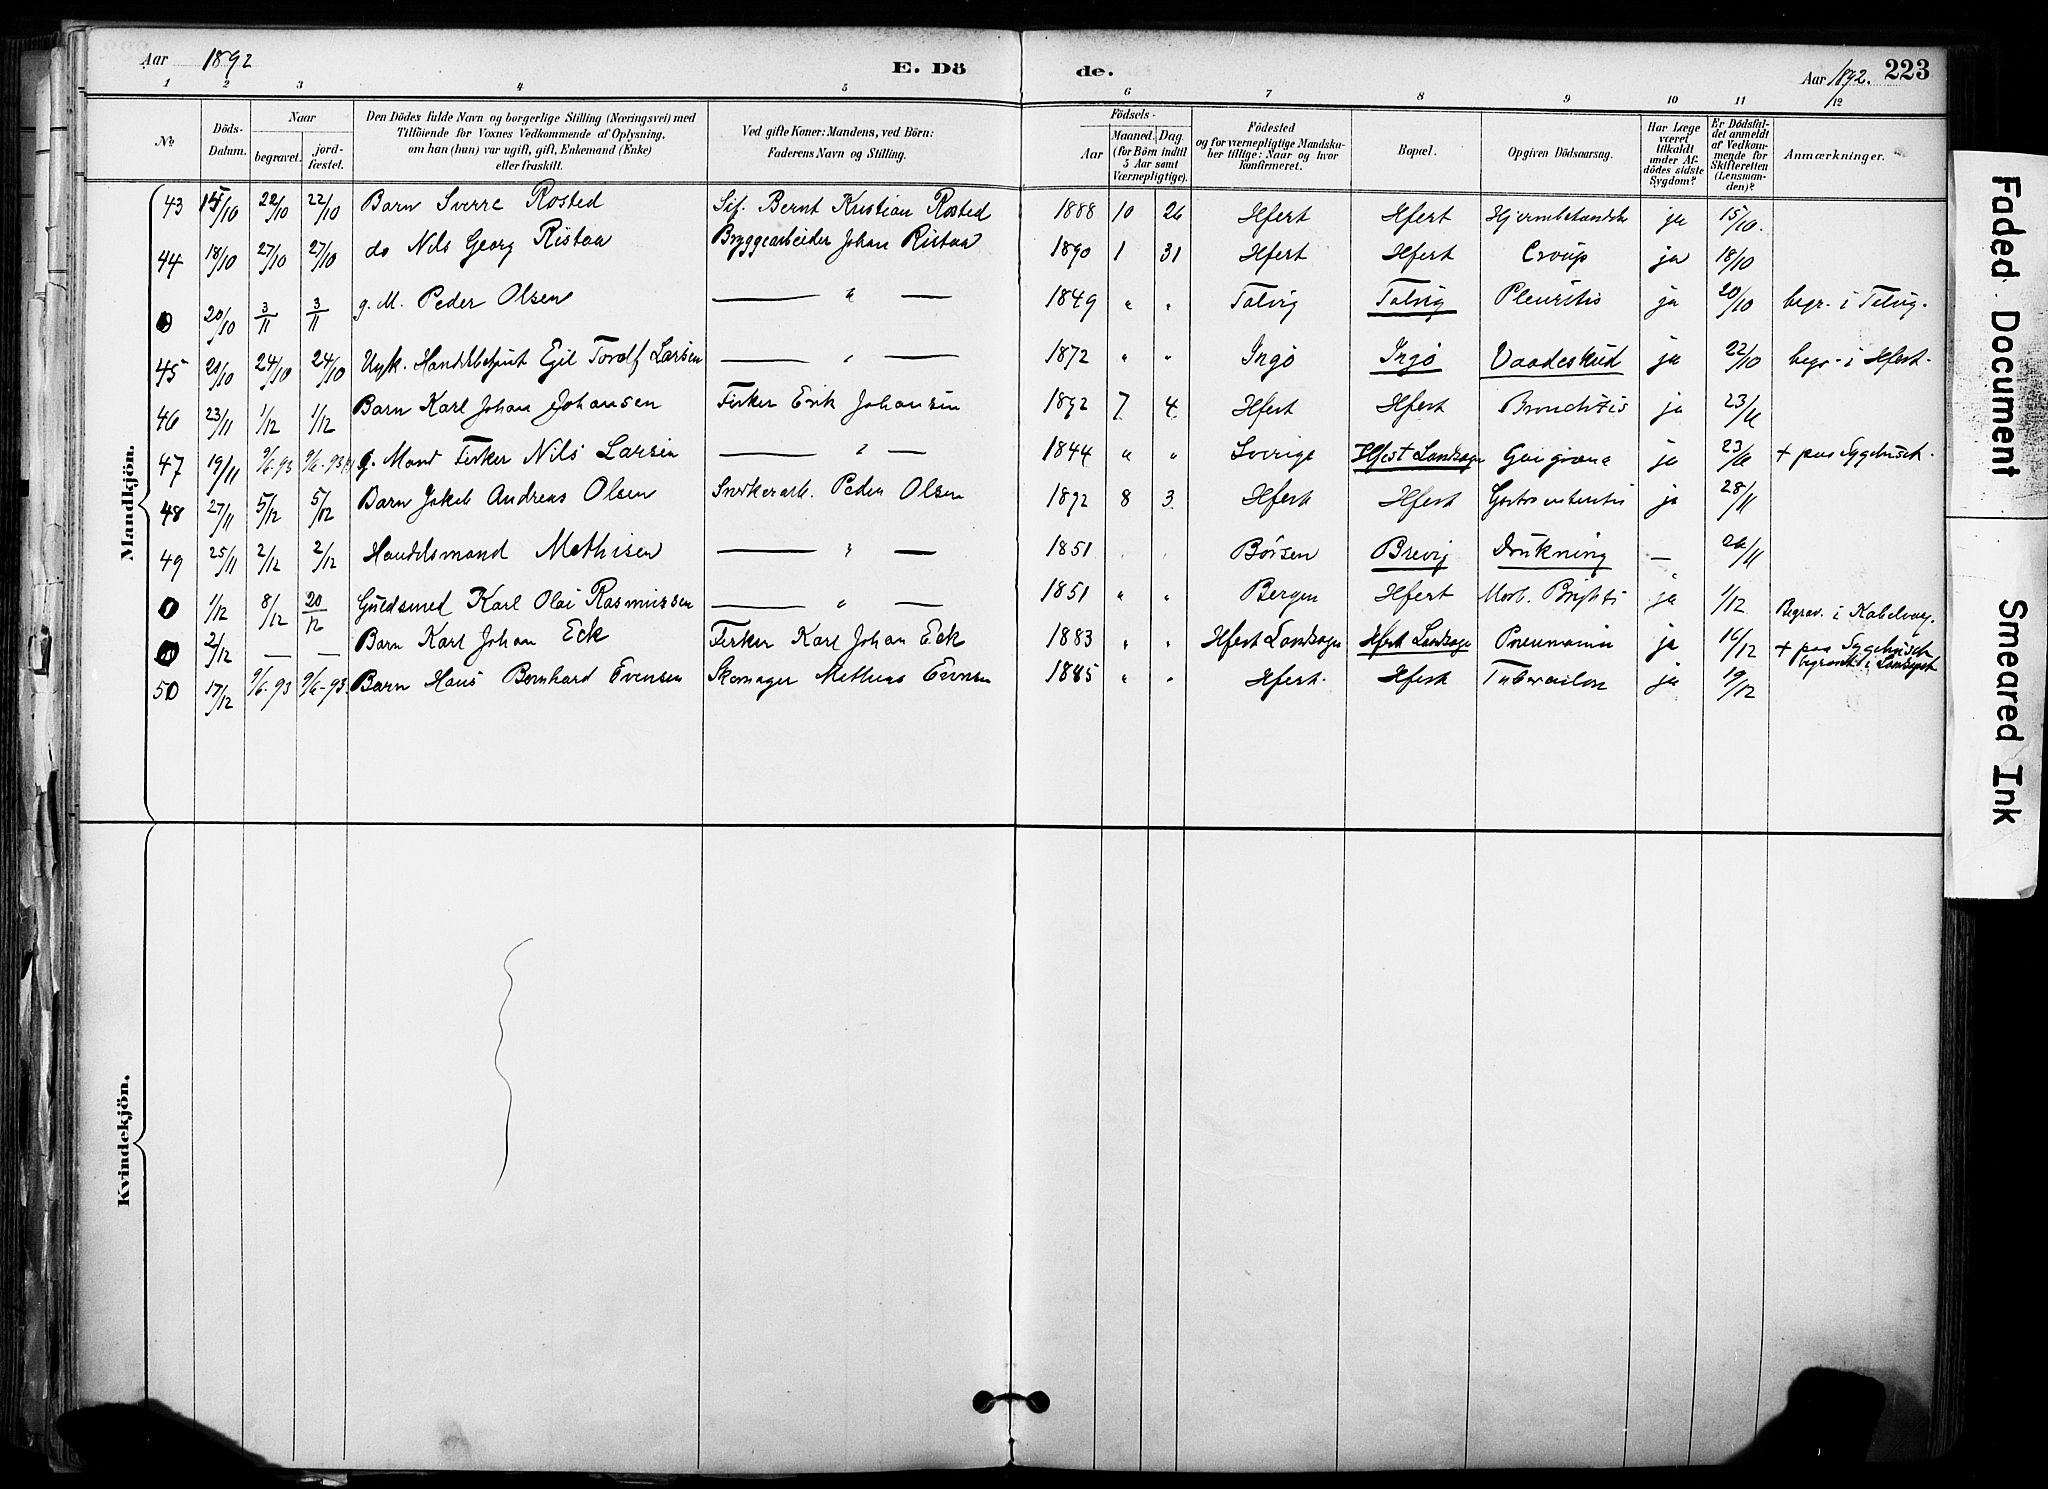 Aar 1892 E. Dö de. Aar 1892. 223
1 2 3 4 5 6 7 8 9 10 11 12
No. Döds-Datum. Naar begravet. jord-fæstet. Den Dödes fulde Navn og borgerlige Stilling (Næringsvei) med Tilföiende for Voxnes Vedkommende af Oplysning, om han (hun) var ugift, gift, Enkemand (Enke) eller fraskilt. Ved gifte Koner: Mandens, ved Börn: Faderens Navn og Stilling. Födsels- Aar Maaned. Dag. (for Börn indtil 5 Aar samt Værnepligtige). Födested og for værnepligtige Mandskaber tillige: Naar og hvor konfirmeret. Bopæl. Opgiven Dödsaarsag. Har Læge været tilkaldt under Afdödes sidste Sygdom? Er Dödsfaldet anmeldt af Vedkommende for Skifteretten (Lensmanden)? Anmærkninger.
Mandkjön.
43 15/10 22/10 22/10 Barn Sverre Rosted Sif. Bernt Kristian Rosted 1888 10 26 Hfest Hfest ja 15/10.
44 18/10 27/10 27/10 do Nils Georg Ristaa Bryggearbeider Johan Ristaa 1890 1 31 Hfest Hfest Croup ja 18/10
0 20/10 3/11 3/11 g. M. Peder Olsen — " — 1849 " " Talvig Talvig Pleuritis ja 20/10 begr. i Talvig.
45 21/10 24/10 24/10 Ungk. Handelsbetjent Egil Torolf Larsen — " — 1872 " " Ingö Ingö Vaadeskud ja 22/10 begr. i Hfest.
46 23/11 1/12 1/12 Barn Karl Johan Johansen Fisker Erik Johansen 1892 7 4 Hfest Hfest Bronchitis ja 23/11
47 19/11 9/6-93 9/6-93 g. Mand Fisker Nils Larsen — " — 1844 " " Sverige Hfest Landsogn Gangræna ja 23/11 + paa Sygehuset.
48 27/11 5/12 5/12 Barn Jakob Andreas Olsen Snekkerarb. Peder Olsen 1892 8 3 Hfest Hfest Gastroenteritis ja 28/11
49 25/11 2/12 2/12 Handelsmand Mathisen — " — 1851 Börsen Brevig Drukning — 26/11
0 1/12 8/12 20/12 Guldsmed Karl Olai Rasmussen — " — 1851 " " Bergen Hfest Morb. Brightii ja 1/12 Begrav. i Kabelvaag.
0 2/12 — — Barn Karl Johan Eck Fisker Karl Johan Eck 1883 " " Hfest Landsogn Hfest Landsogn Pneumonia ja 16/12 + paa Sygehuset begravet i Landsognet
50 17/12 9/6-93 9/6-93 Barn Hans Bernhard Evensen Skomager Mathias Evensen 1885 " " Hfest. Hfest Tuberculose ja 19/12
Kvindekjön.
Faded Document
Smeared Ink